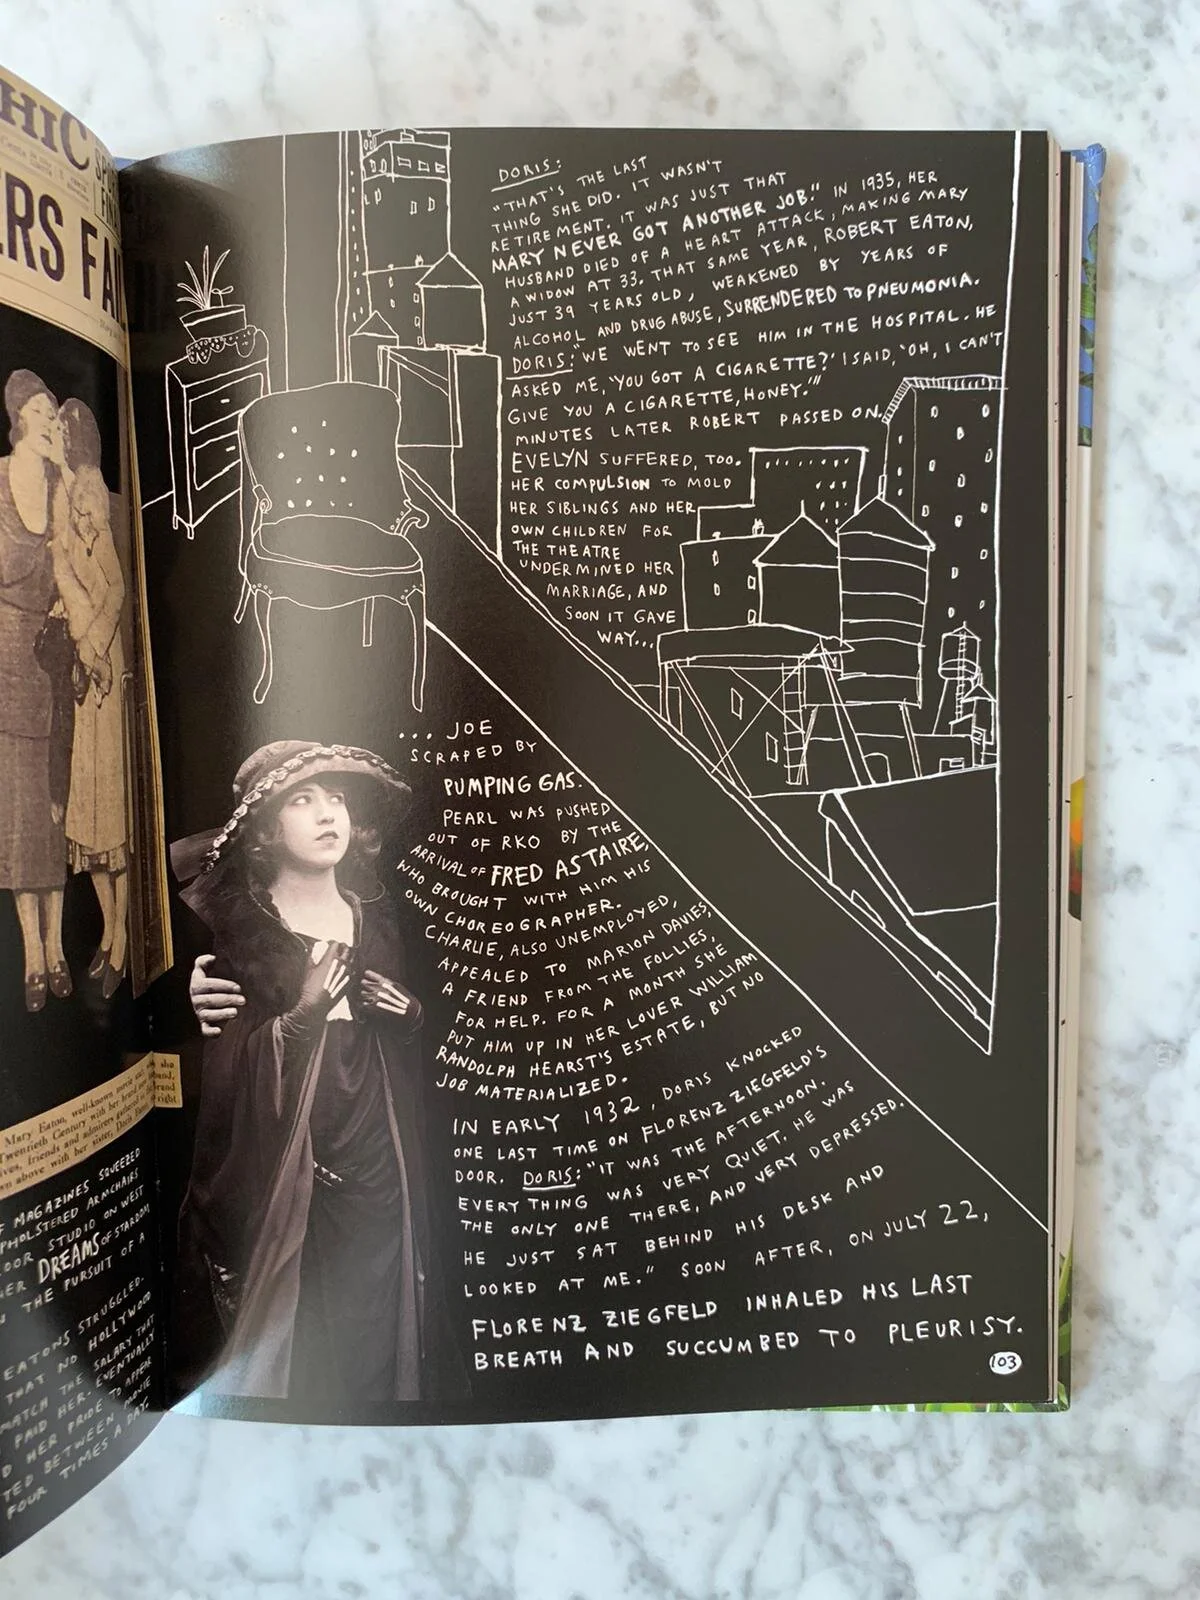 HIC
ERS FA
Mary Eaton, well-known movie
Twentieth Century with her
friends and admirers gathered
above with her sister, Doris
F MAGAZINES SQUEEZED
ARMCHAIRS
OOR STUDIO ON WEST
HER DREAMS OF STARDOM
THE PURSUIT OF A
EATONS STRUGGLED.
THAT NO HOLLYWOOD
MATCH THE SALARY THAT
PAID HER. EVENTUALLY
D HER PRIDE TO APPEAR
TED BETWEEN MOVIE
FOUR TIMES A DAY.
DORIS:
"THAT'S THE LAST
THING SHE DID. IT WASN'T
RETIREMENT. IT WAS JUST THAT
MARY NEVER GOT ANOTHER JOB." IN 1935, HER
HUSBAND DIED OF A HEART ATTACK, MAKING MARY
A WIDOW AT 33. THAT SAME YEAR, ROBERT EATON,
JUST 39 YEARS OLD, WEAKENED BY YEARS OF
ALCOHOL AND DRUG ABUSE, SURRENDERED TO PNEUMONIA.
DORIS: "WE WENT TO SEE HIM IN THE HOSPITAL. HE
ASKED ME, 'YOU GOT A CIGARETTE?' I SAID, 'OH, I CAN'T
GIVE YOU A CIGARETTE, HONEY.'"
MINUTES LATER ROBERT PASSED ON.
EVELYN SUFFERED, TOO.
HER COMPULSION TO MOLD
HER SIBLINGS AND HER
OWN CHILDREN FOR
THE THEATRE
UNDERMINED HER
MARRIAGE, AND
SOON IT GAVE
WAY...
... JOE
SCRAPED BY
PUMPING GAS.
PEARL WAS PUSHED
OUT OF RKO BY THE
ARRIVAL OF FRED ASTAIRE,
WHO BROUGHT WITH HIM HIS
OWN CHOREOGRAPHER.
CHARLIE, ALSO UNEMPLOYED,
APPEALED TO MARION DAVIES,
A FRIEND FROM THE FOLLIES,
FOR HELP. FOR A MONTH SHE
PUT HIM UP IN HER LOVER WILLIAM
RANDOLPH HEARST'S ESTATE, BUT NO
JOB MATERIALIZED.
IN EARLY 1932, DORIS KNOCKED
ONE LAST TIME ON FLORENZ ZIEGFELD'S
DOOR. DORIS: "IT WAS THE AFTERNOON.
EVERYTHING WAS VERY QUIET. HE WAS
THE ONLY ONE THERE, AND VERY DEPRESSED.
HE JUST SAT BEHIND HIS DESK AND
LOOKED AT ME." SOON AFTER, ON JULY 22,
FLORENZ ZIEGFELD INHALED HIS LAST
BREATH AND SUCCUMBED TO PLEURISY.
103